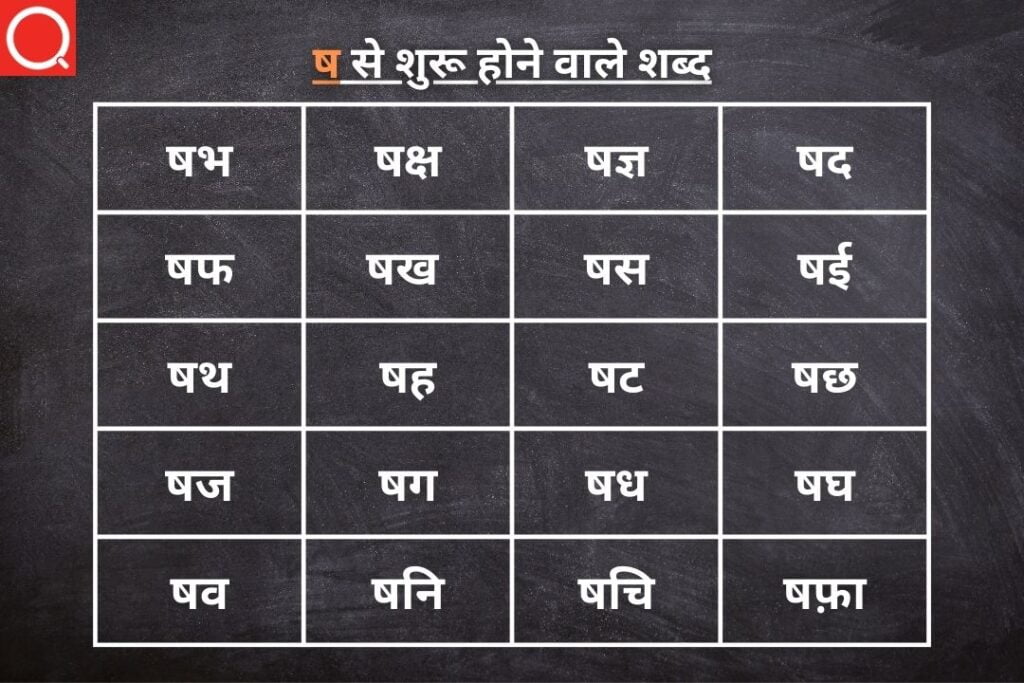 ष से शुरू होने वाले शब्द
षभ षक्ष षज्ञ षद
षफ षख षस षई
षथ षह षट षछ
षज षग षध षघ
षव षनि षचि षफ़ा